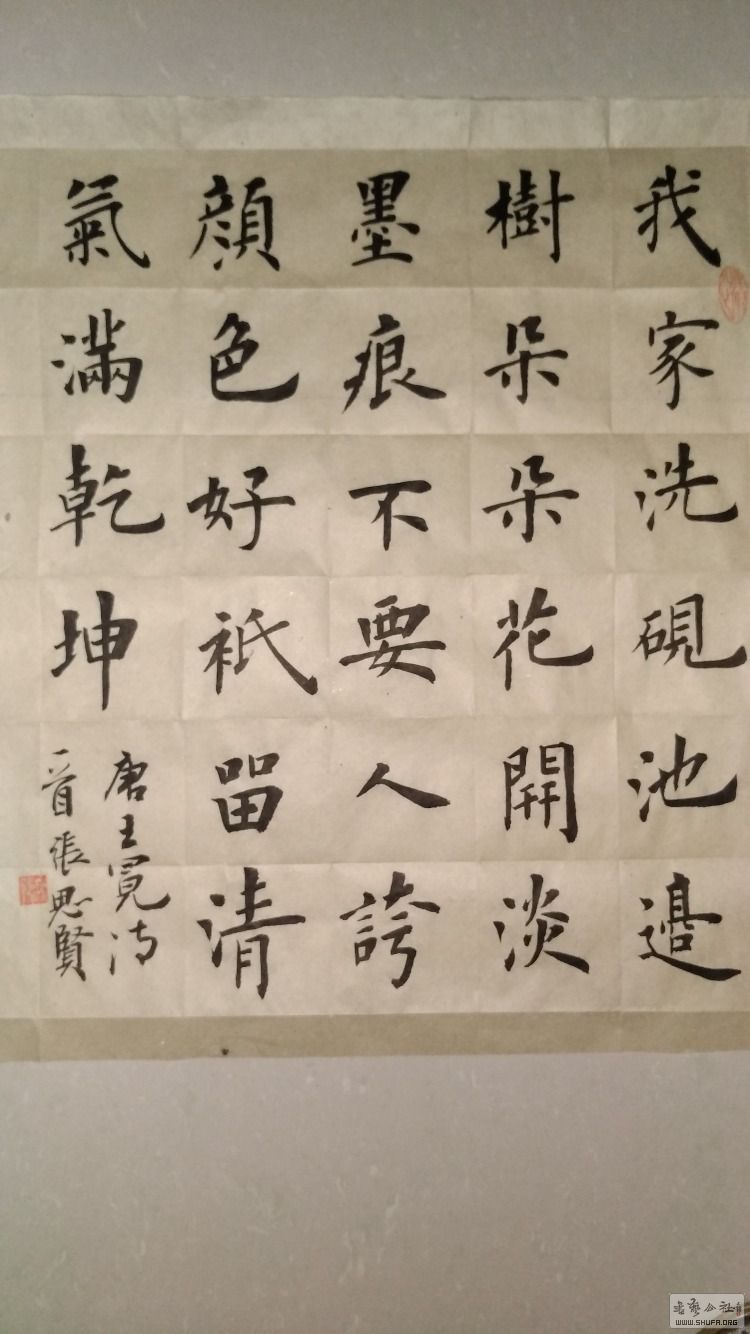 我家洗硯池邉
樹朵朵花開淡
墨痕不要人誇
顏色好祇留清
氣滿乾坤
唐王冕诗
一首張思賢
WWW.SHUFA.ORG